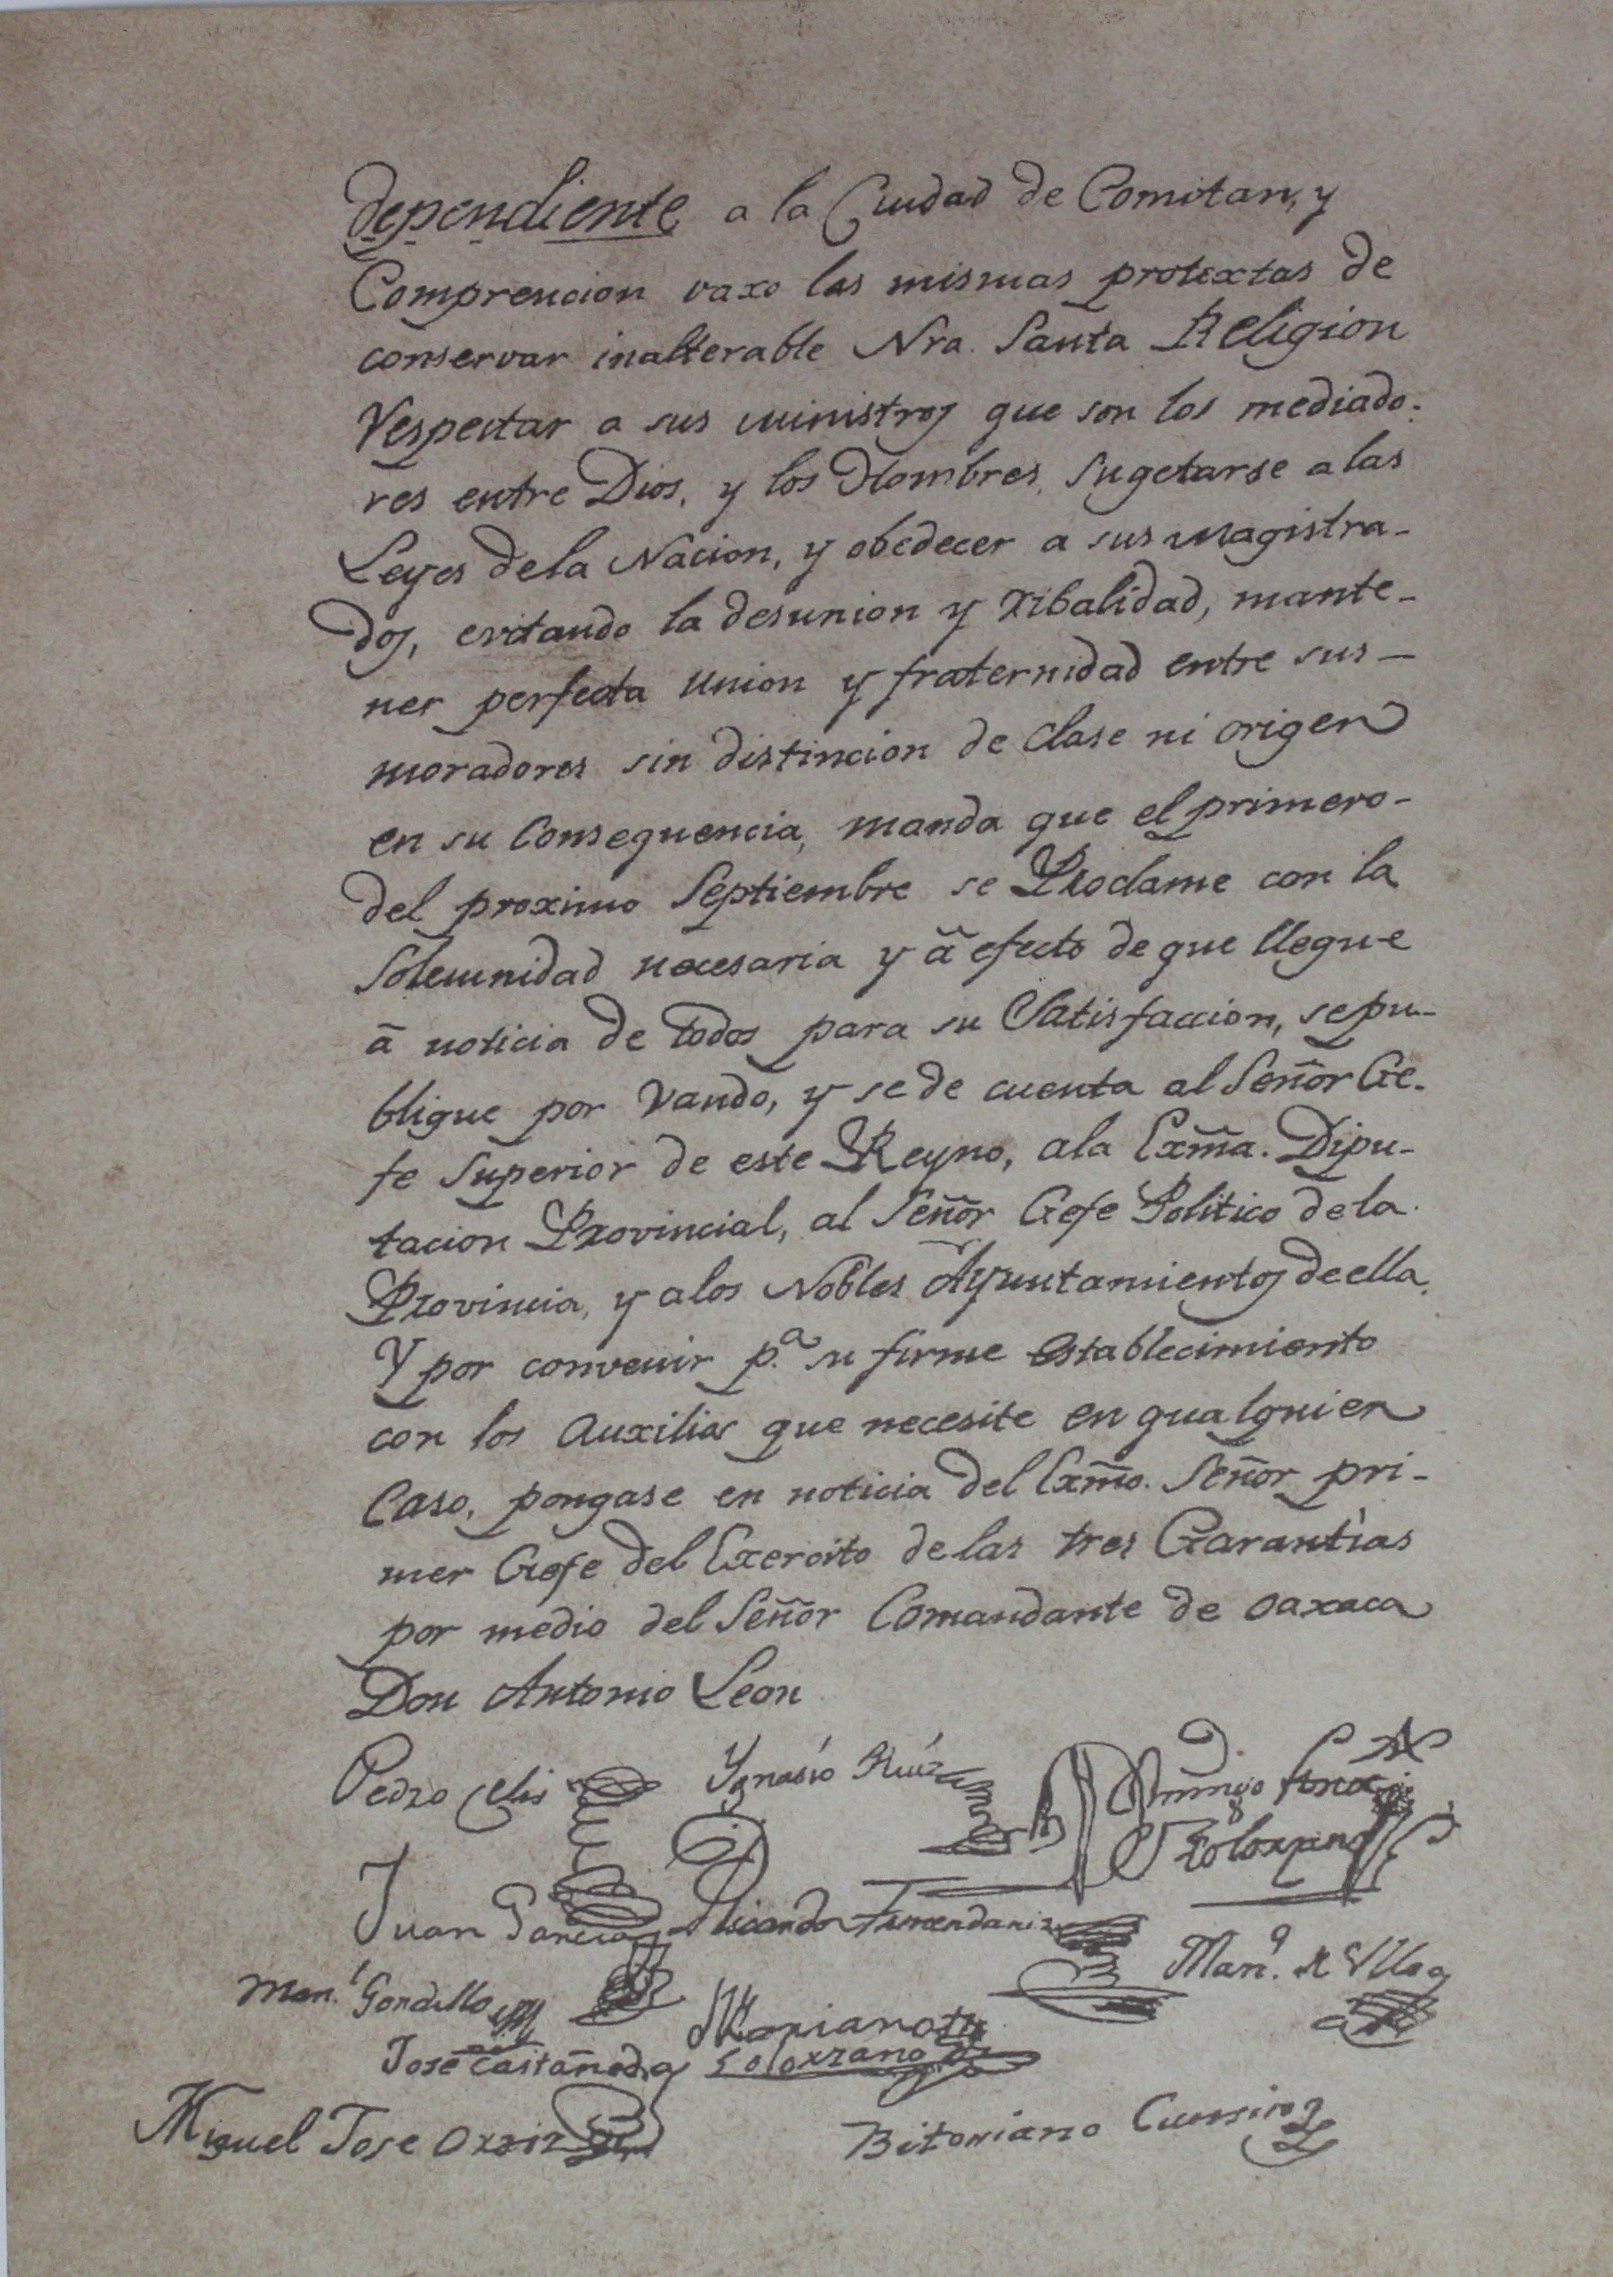 dependiente a la Ciudad de Comitan, y
Comprencion vaxo las mismas protextas de
conservar inalterable Nra. Santa Religion
Respectar a sus ministros que son los mediado-
res entre Dios, y los Hombres, Sugetarse a las
Leyes de la Nacion, y obedecer a sus magistra-
dos, evitando la desunion y ribalidad, mante-
ner perfecta union y fraternidad entre sus -
moradores sin distincion de clase ni origen
en su Consequencia, manda que el primero -
del proximo Septiembre se Proclame con la
Solemnidad necesaria y â efecto de que llegue
â noticia de todos para su Satisfaccion, se pu-
blique por Vando, y se de cuenta al Señor Ge-
fe Superior de este Reyno, ala Exma. Dipu-
tacion Provincial, al Señor Gefe Politico de la
Provincia, y a los Nobles Ayuntamientos de ella.
Y por convenir p.a su firme establecimiento
con los Auxilios que necesite en qualquier
Caso, pongase en noticia del Exmo. Señor pri-
mer Gefe del Exercito de las tres Garantías
por medio del Señor Comandante de Oaxaca
Don Antonio Leon
Pedro Celis Ygnasio Ruíz
Solorzano
Juan Garcia
Man.l Gordillo Man.
Mariano
Jose Castañeda Solorzano
Miguel Jose Bitoriano